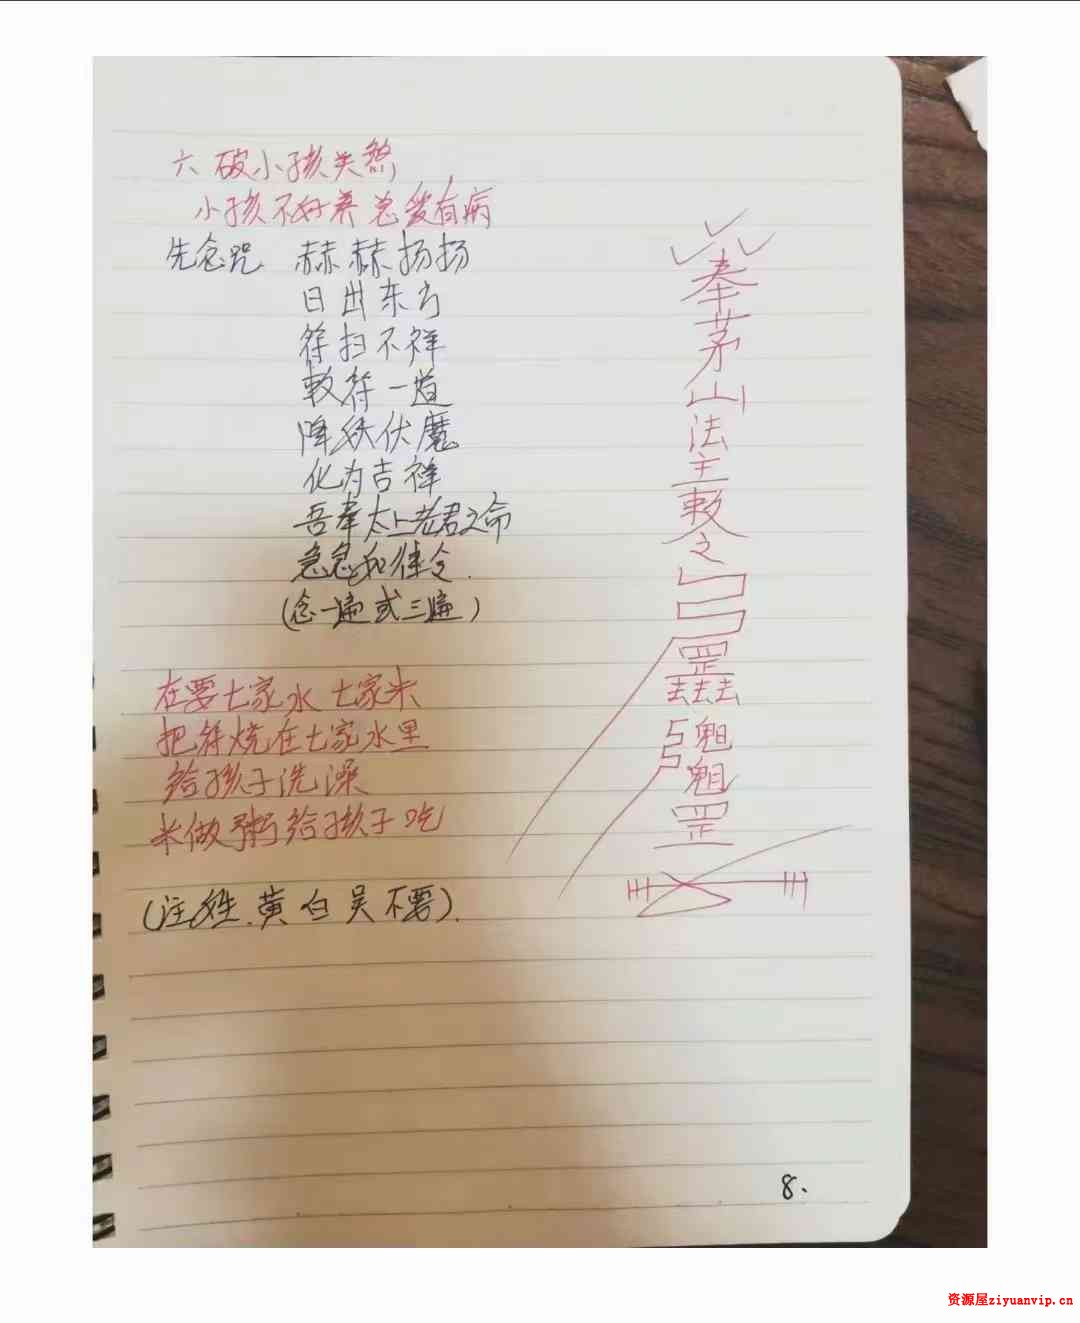 六 破小孩关煞
小孩不好养总爱有病
先念咒 赫赫扬扬
日出东方
符扫不祥
敕符一道
降妖伏魔
化为吉祥
吾奉太上老君之命
急急如律令.
(念一遍或三遍)
在要七家水 七家米
把符烧在七家水里
给孩子洗澡
米做粥给孩子吃
(注姓.黄白吴不要).
奉
茅
山
法
主
敕
令
罡
去去去
魁
魁
罡
8.
资源屋ziyuanvip.cn